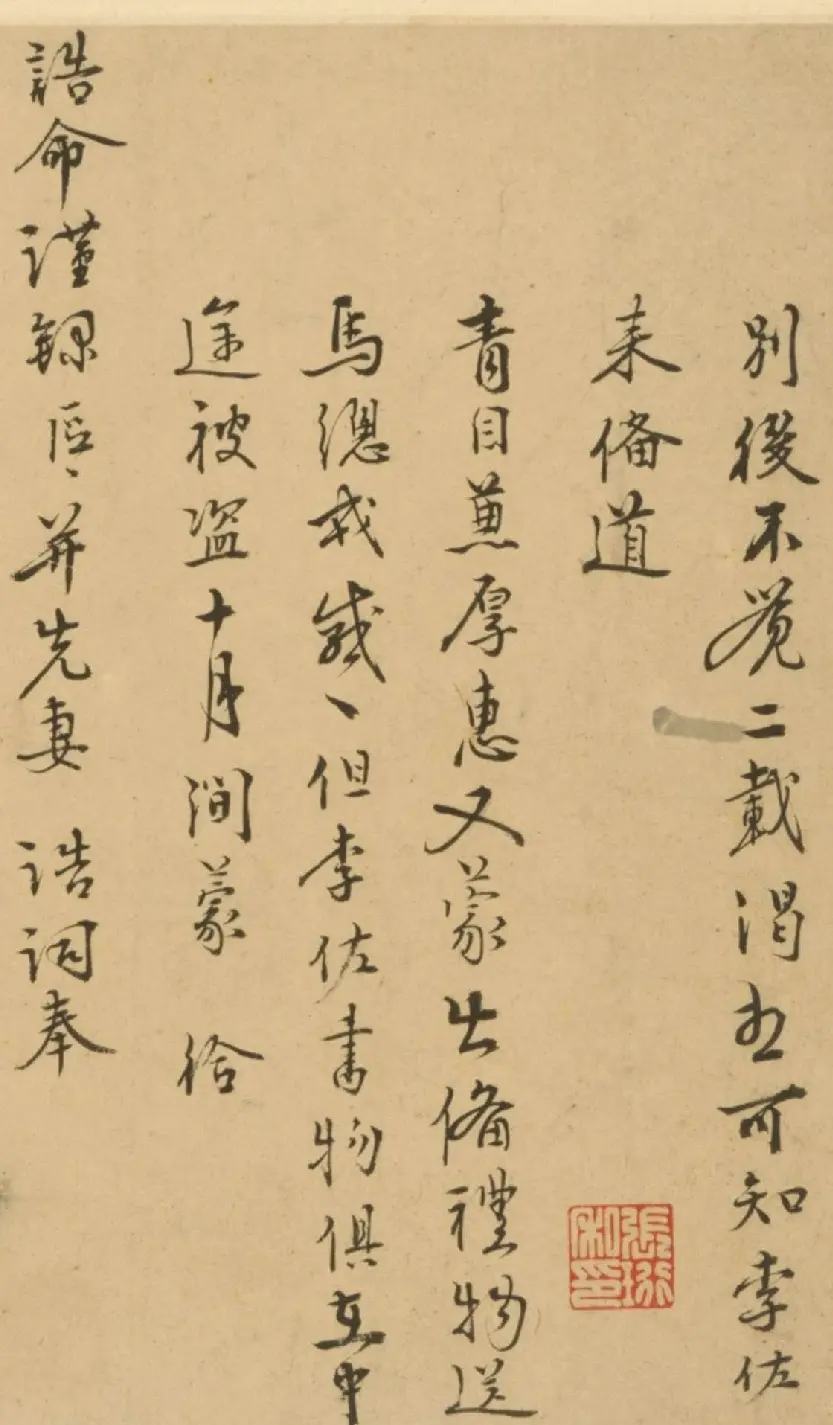 別後不覺二載渴想可知李佐
来備道
青目兼厚惠又蒙出備禮物送
馬總戎感〻但李佐書物俱在中
途被盗十月間蒙 給
誥命謹録區〻并先妻 誥詞奉
張珩私印